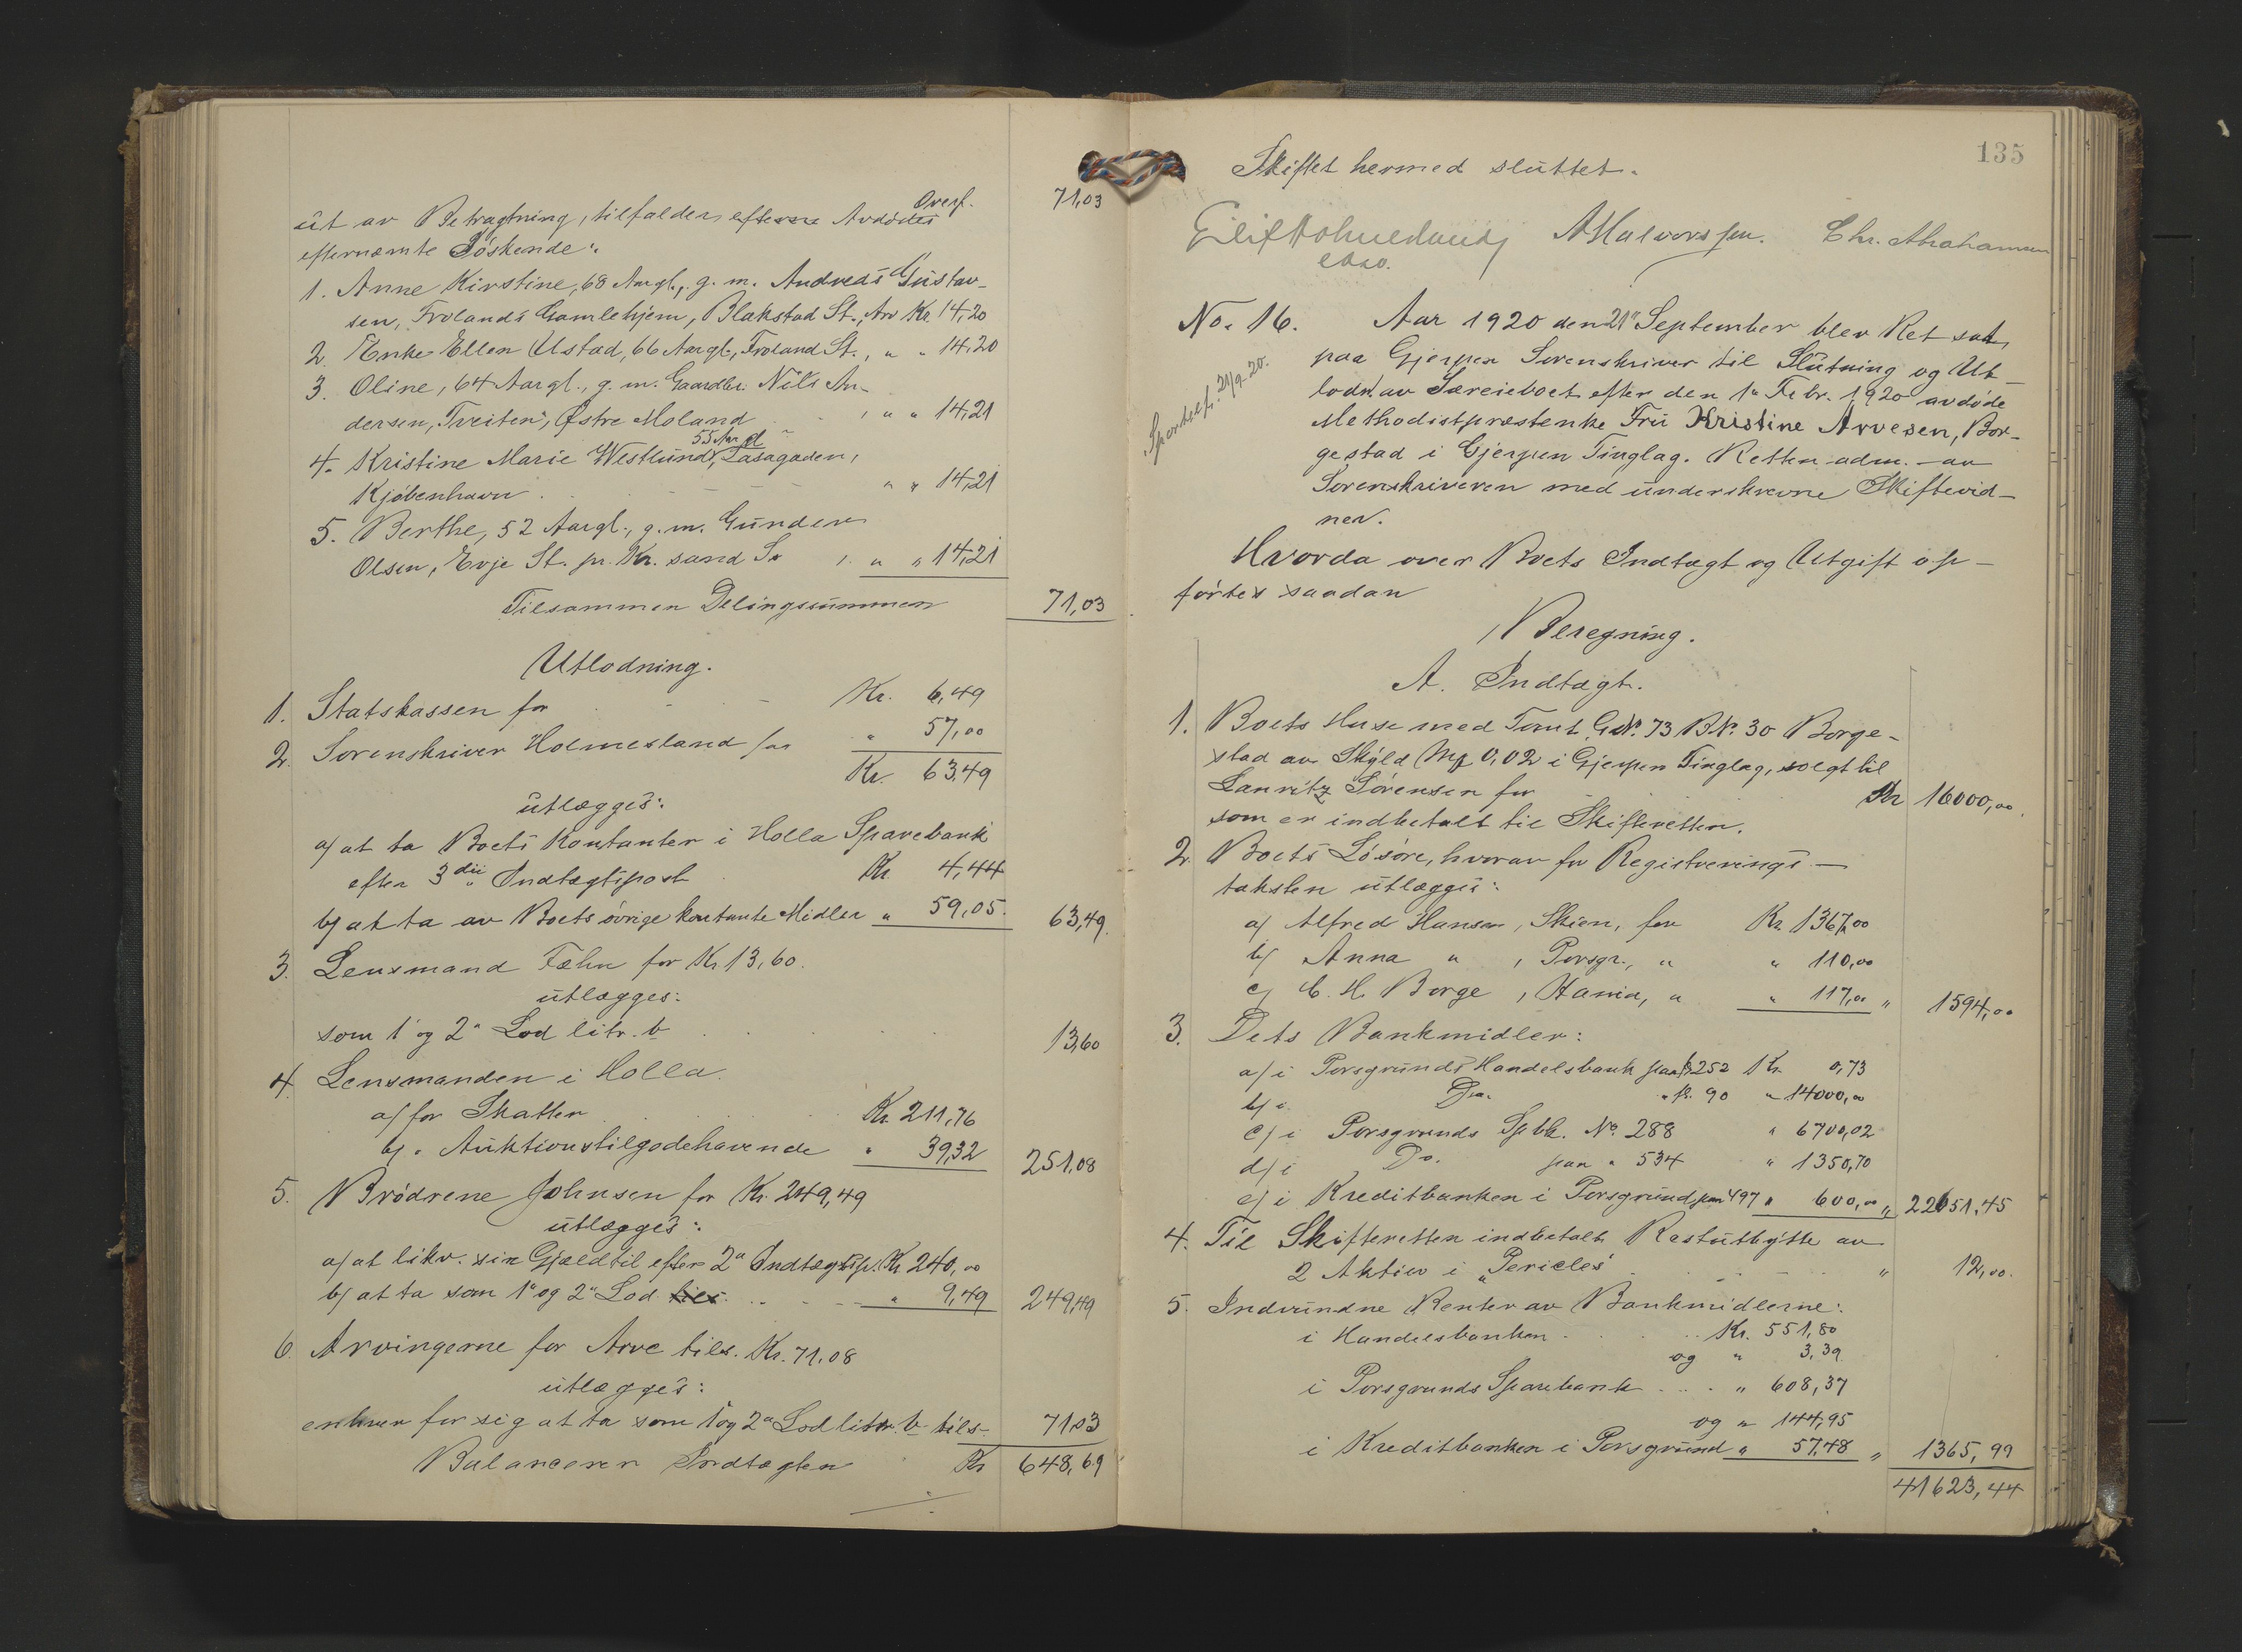 Overf. 71,03
ut av Betragtning, tilfalder efterne Avdødes
efternæmte Søskende:
1. Anne Kirstine, 68 Aargl., g. m. Andreas Gustav-
sen, Frolands Gamlehjem, Blakstad St., Arv Kr. 14,20
2. Enke Ellen Ustad, 66 Aargl., Froland St., " " 14,20
3. Oline, 64 Aargl., g. m. Gaardbr. Nils An-
dersen, Tveiten, Østre Moland , " " 14,21
55 Aar gl
4. Kristine Marie Westlund, Lasagaden,
Kjøbenhavn . " " 14,21
5. Berthe, 52 Aargl., g. m. Gunder
Olsen, Evje St. pr. Kr.sand S. , " " 14,21
Tilsammen Delingssummen 71,03
Utlodning.
1. Statskassen for Kr. 6,49
2. Sorenskriver Holmesland for " 57,00
Kr. 63,49
utlægges:
a/ at ta Boets Kontanter i Holla Sparebank
efter 3die Indtægtspost Kr. 4,44
b/ at ta av Boets øvrige kontante Midler " 59,05. 63,49.
3. Lensmand Fæhn for Kr. 13,60.
utlægges:
som 1 og 2" Lod litr. b 13,60
4. Lensmanden i Holla.
a/ for Skatter Kr. 211,76
b/ " Auktionstilgodehavende " 39,32 251,08
5. Brødrene Johnsen for Kr. 249,49
utlægges:
a/ at likv. sin Gjæld til efter 2" Indtægtsp. Kr. 240,00
b/ at ta som 1" og 2" Lod " 9,49 249,49
6. Arvingerne for Arve tils. Kr. 71,08
utlægges:
enhver for sig at ta som 1" og 2" Lod litr. b tils. 71,03
Balancerer Indtægten Kr. 648,69
135
Skiftet hermed sluttet.
Eilif Holmesland A Halvorssen. Chr. Abrahamsen
No. 16. Aar 1920 den 21" September blev Ret sat
paa Gjerpen Sorenskriver til Slutning og Ut-
lodn. av Særeieboet efter den 1" Febr. 1920 avdøde
Methodistprestenke Fru Kristine Arvesen, Bor-
gestad i Gjerpen Tinglag. Retten adm. av
Sorenskriveren med underskrevne Skiftevid-
ner.
21/9-20.
Hvorda over Boets Indtægt og Utgift op-
førtes saadan
Beregning.
A. Indtægt.
1. Boets Huse med Tomt GNr. 73 BNr. 30 Borge-
stad av Skyld Mg 0,02 i Gjerpen Tinglag, solgt til
Lauritz Sørensen for Kr. 16000,00.
som er indbetalt til Skifteretten.
2. Boets Løsøre, hvorav for Registrerings-
taksten utlægges:
a/ Alfred Hansen, Skien, for Kr. 1367,00
b/ Anna " , Porsgr., " " 110,00
c/ C. H. Borge , " " 117,00 " 1594,00
3. Dets Bankmidler:
a/ i Porsgrunds Handelsbank paa fr 252 Kr. 0,73
b/ i Do. " fr. 90 " 14000,00
c/ i Porsgrunds Spbk. No. 288 " 6700,02
d/ i Do. paa " 534 " 1350,70
e/ i Kreditbanken i Porsgrund paa 497 " 600,00 " 22651,45
4. Til Skifteretten indbetalt Restutbytte av
2 Aktier i "Pericles" " 12,00.
5. Indvundne Renter av Bankmidlerne:
i Handelsbanken Kr. 551,80
og " 3,39
i Porsgrunds Sparebank " 608,37
og " 144,95
i Kreditbanken i Porsgrund " 57,48 " 1365,99
41623,44